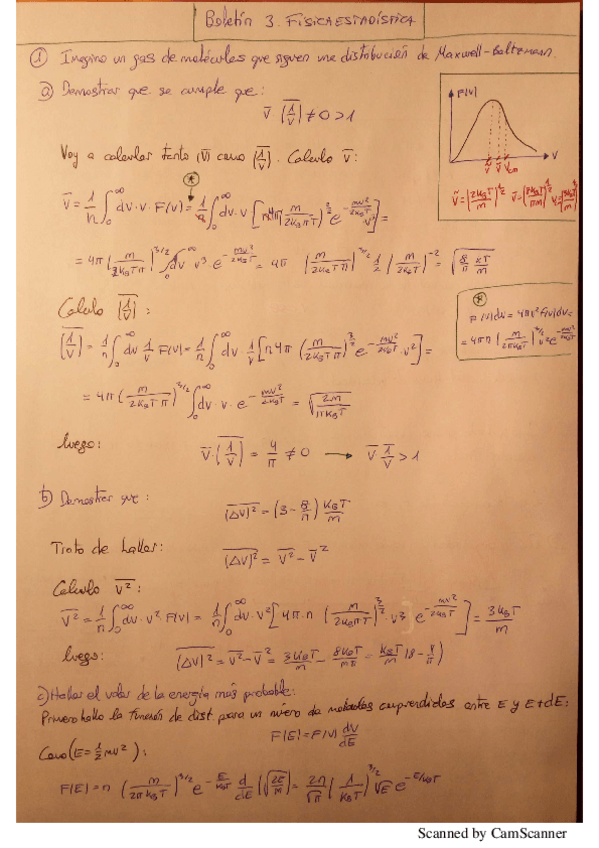 Boletín 3. FÍSICA ESTADÍSTICA
① Imagino un gas de moléculas que siguen una distribución de Maxwell-Boltzmann.
a) Demostrar que se cumple que:
v̄ (1/v)‾ ≠ 0 > 1
F(v)
v
ṽ v̄ v_cm
ṽ = (2k_BT/m)^{1/2} v̄ = (8k_BT/πm)^{1/2}
Voy a calcular tanto (v̄) como (1/v)‾. Calculo v̄:
v̄ = 1/n ∫₀^∞ dv·v·F(v) = 1/n ∫₀^∞ dv·v [n4π (m/2k_BTπ)^{3/2} e^{-mv²/2k_BT} v²] =
= 4π (m/2k_BTπ)^{3/2} ∫₀^∞ dv v³ e^{-mv²/2k_BT} = 4π (m/2k_BTπ)^{3/2} 1/2 (m/2k_BT)^{-2} = √(8/π kT/m)
Calculo (1/v)‾:
(1/v)‾ = 1/n ∫₀^∞ dv 1/v F(v) = 1/n ∫₀^∞ dv·1/v [n4π (m/2k_BTπ)^{3/2} e^{-mv²/2k_BT}·v²] =
F(v)dv = 4πv²f(v)dv =
= 4πn (m/2πk_BT)^{3/2} v² e^{-mv²/2k_BT}
= 4π (m/2k_BTπ)^{3/2} ∫₀^∞ dv·v·e^{-mv²/2k_BT} = √(2m/πk_BT)
luego:
v̄·(1/v)‾ = 4/π ≠ 0 → v̄ (1/v)‾ > 1
b) Demostrar que:
(Δv)²‾ = (3 - 8/π) k_BT/m
Trato de hallar:
(Δv)²‾ = v²‾ - v̄²
Calculo v²‾:
v²‾ = 1/n ∫₀^∞ dv·v² F(v) = 1/n ∫₀^∞ dv·v² [4π·n (m/2k_BπT)^{3/2}·v³ e^{-mv²/2k_BT}] = 3k_BT/m
luego:
(Δv)²‾ = v²‾ - v̄² = 3k_BT/m - 8k_BT/mπ = k_BT/m (8 - 8/π)
c) Hallar el valor de la energía más probable:
Primero hallo la función de dist. para un número de moléculas comprendidas entre E y E+dE:
F(E) = F(v) dv/dE
Como (E = 1/2 mv²):
F(E) = n (m/2πk_BT)^{3/2} e^{-E/k_BT} d/dE (√(2E/m)) = 2n/√π (1/k_BT)^{3/2} √E e^{-E/k_BT}
Scanned by CamScanner